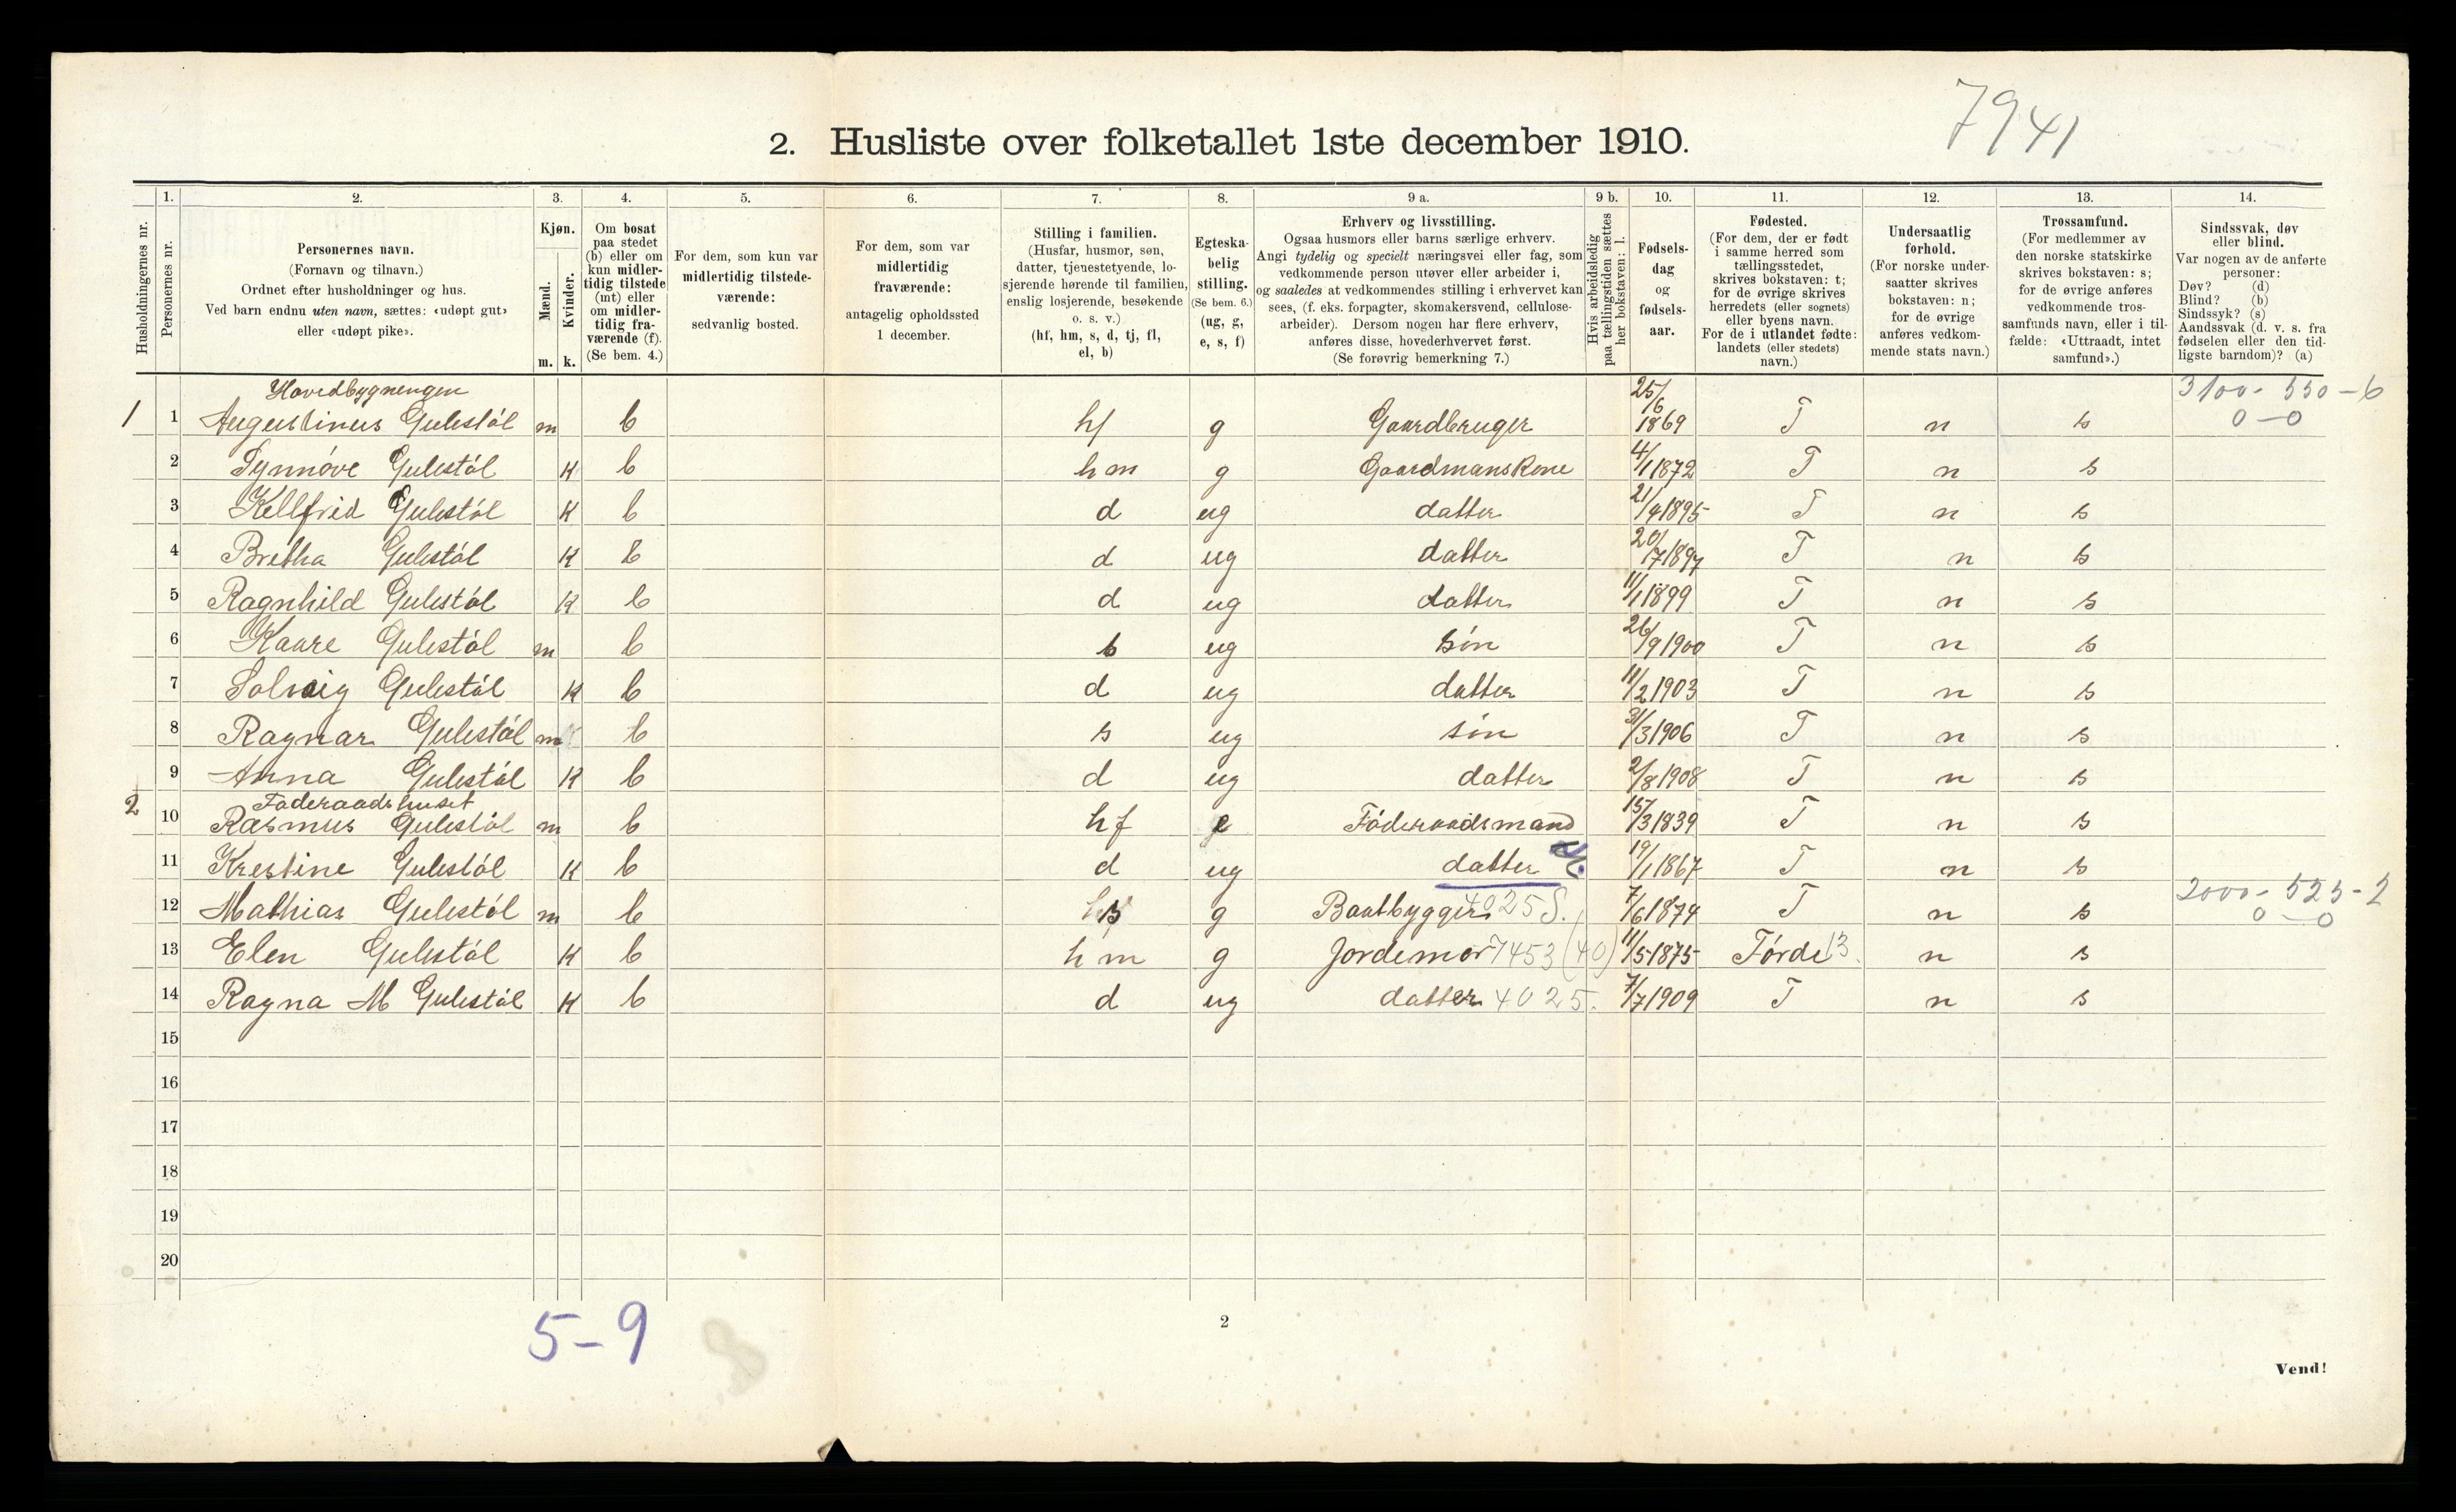 7941
2. Husliste over folketallet 1ste december 1910.
Husholdningernes nr.
1.
Personernes nr.
2.
Personernes navn.
(Fornavn og tilnavn.)
Ordnet efter husholdninger og hus.
Ved barn endnu uten navn, sættes: «udøpt gut»
eller «udøpt pike».
3.
Kjøn.
Mænd.
m.
Kvinder.
k.
4.
Om bosat
paa stedet
(b) eller om
kun midler-
tidig tilstede
(mt) eller
om midler-
tidig fra-
værende (f).
(Se bem. 4.)
5.
For dem, som kun var
midlertidig tilstede-
værende:
sedvanlig bosted.
6.
For dem, som var
midlertidig
fraværende:
antagelig opholdssted
1 december.
7.
Stilling i familien.
(Husfar, husmor, søn,
datter, tjenestetyende, lo-
sjerende hørende til familien,
enslig losjerende, besøkende
o. s. v.)
(hf, hm, s, d, tj, fl,
el, b)
8.
Egteska-
belig
stilling.
(Se bem. 6.)
(ug, g,
e, s, f)
9 a.
Erhverv og livsstilling.
Ogsaa husmors eller barns særlige erhverv.
Angi tydelig og specielt næringsvei eller fag, som
vedkommende person utøver eller arbeider i,
og saaledes at vedkommendes stilling i erhvervet kan
sees, (f. eks. forpagter, skomakersvend, cellulose-
arbeider). Dersom nogen har flere erhverv,
anføres disse, hovederhvervet først.
(Se forøvrig bemerkning 7.)
9 b.
Hvis arbeidsledig
paa tællingstiden sættes
her bokstaven: l.
10.
Fødsels-
dag
og
fødsels-
aar.
11.
Fødested.
(For dem, der er født
i samme herred som
tællingsstedet,
skrives bokstaven: t;
for de øvrige skrives
herredets (eller sognets)
eller byens navn.
For de i utlandet fødte:
landets (eller stedets)
navn.)
12.
Undersaatlig
forhold.
(For norske under-
saatter skrives
bokstaven: n;
for de øvrige
anføres vedkom-
mende stats navn.)
13.
Trossamfund.
(For medlemmer av
den norske statskirke
skrives bokstaven: s;
for de øvrige anføres
vedkommende tros-
samfunds navn, eller i til-
fælde: «Uttraadt, intet
samfund».)
14.
Sindssvak, døv
eller blind.
Var nogen av de anførte
personer:
Døv? (d)
Blind? (b)
Sindssyk? (s)
Aandssvak (d. v. s. fra
fødselen eller den tid-
ligste barndom)? (a)
Hovedbygnengen 3100 - 550 - 6
1 1 Augustinus Gulestøl m b hf g Gaardbruger 25/6 1869 T n s 0-0
2 Synnøve Gulestøl K b hm g Gaardmanskone 4/1 1872 T n s
3 Kellfrid Gulestøl K b d ug datter 21/4 1895 T n s
4 Bretha Gulestøl K b d ug datter 20/7 1897 T n s
5 Ragnhild Gulestøl K b d ug datter 11/1 1899 T n s
6 Kaare Gulestøl m b s ug søn 26/9 1900 T n s
7 Solveig Gulestøl K b d ug datter 11/2 1903 T n s
8 Ragnar Gulestøl m b s ug søn 31/3 1906 T n s
9 Anna Gulestøl K b d ug datter 2/8 1908 T n s
2 Føderaadshuset
10 Rasmus Gulestøl m b hf e Føderaadsmand 15/3 1839 T n s
11 Krestine Gulestøl K b d ug datter 19/1 1867 T n s
12 Mathias Gulestøl m b g Baatbygger 4025 S. 7/6 1874 T n s 2000 - 525 - 2
0-0
13 Elen Gulestøl K b hm g Jordemor 7453 (40) 11/5 1875 Førde 13. n s
14 Ragna M Gulestøl K b d ug datter 4025. 7/7 1909 T n s
15
16
17
18
19
20
5-9
2
Vend!